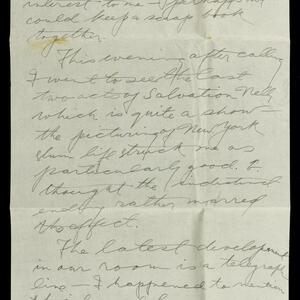 interest to me — perhaps we
could keep a scrap book
together.
This evening after calling
I went to see the last
two acts of Salvation Nell,
which is quite a show —
the picturing of New York
slum life struck me as
particularly good. I
thought the individual
ending rather marred
the effect.
The latest development
in our room is a telegraph
line — I happened to mention